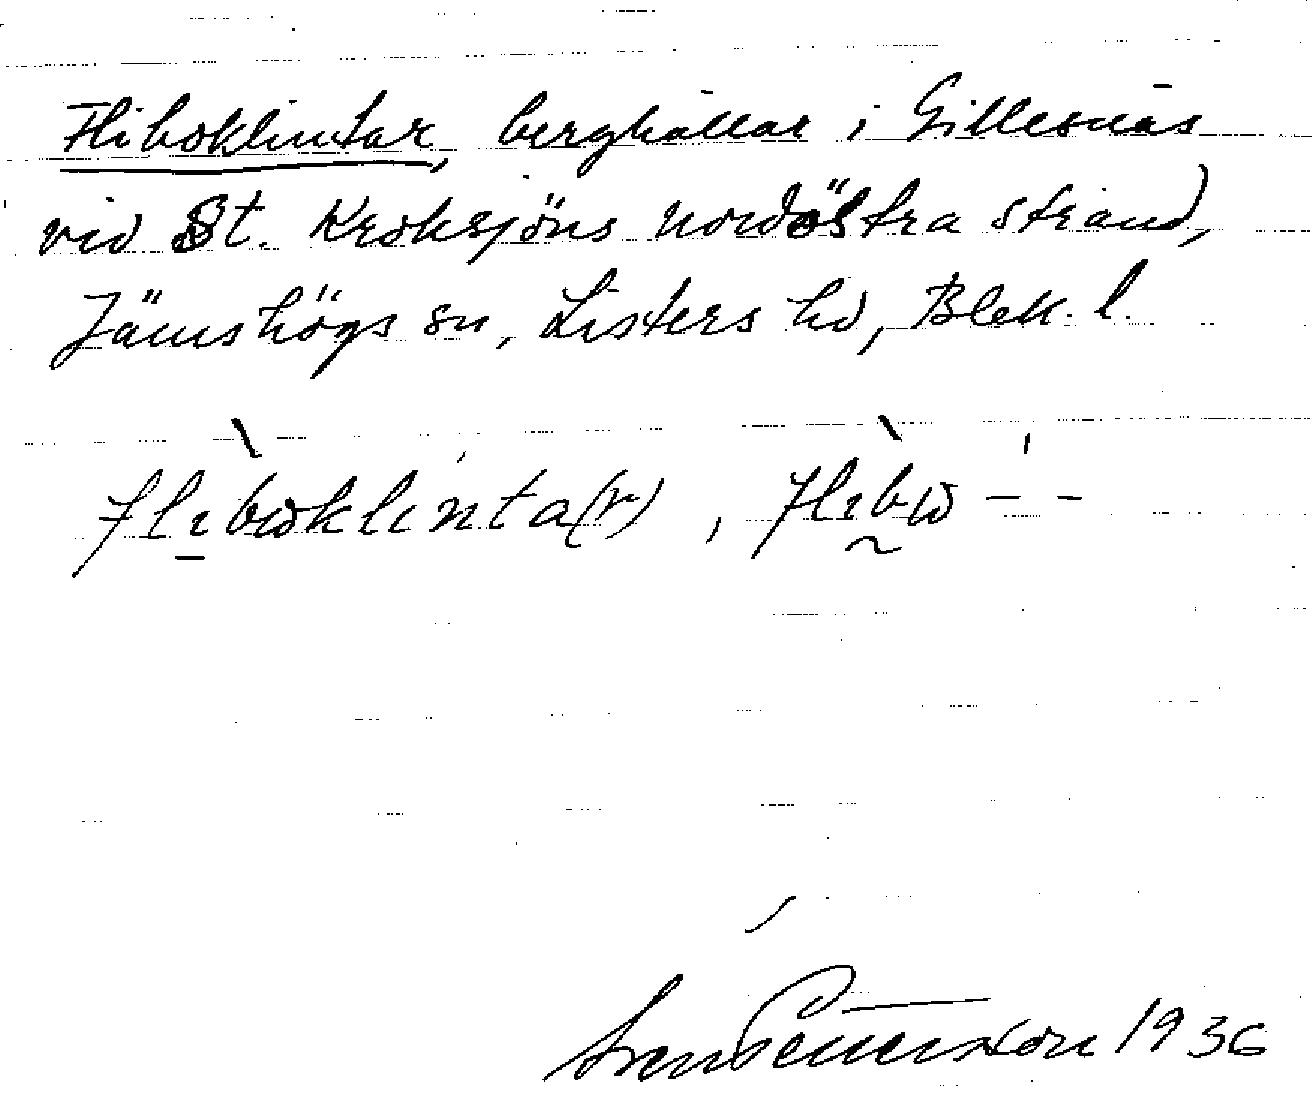 Fliboklintar, berghällar i Gillesnäs
vid St. Kroksjöns nordöstra strand,
Jämshögs sn, Listers hd, Blek. l.
flɪ̀bωklinta(r), flɪ̀bω – –
Sven Pettersson 1936